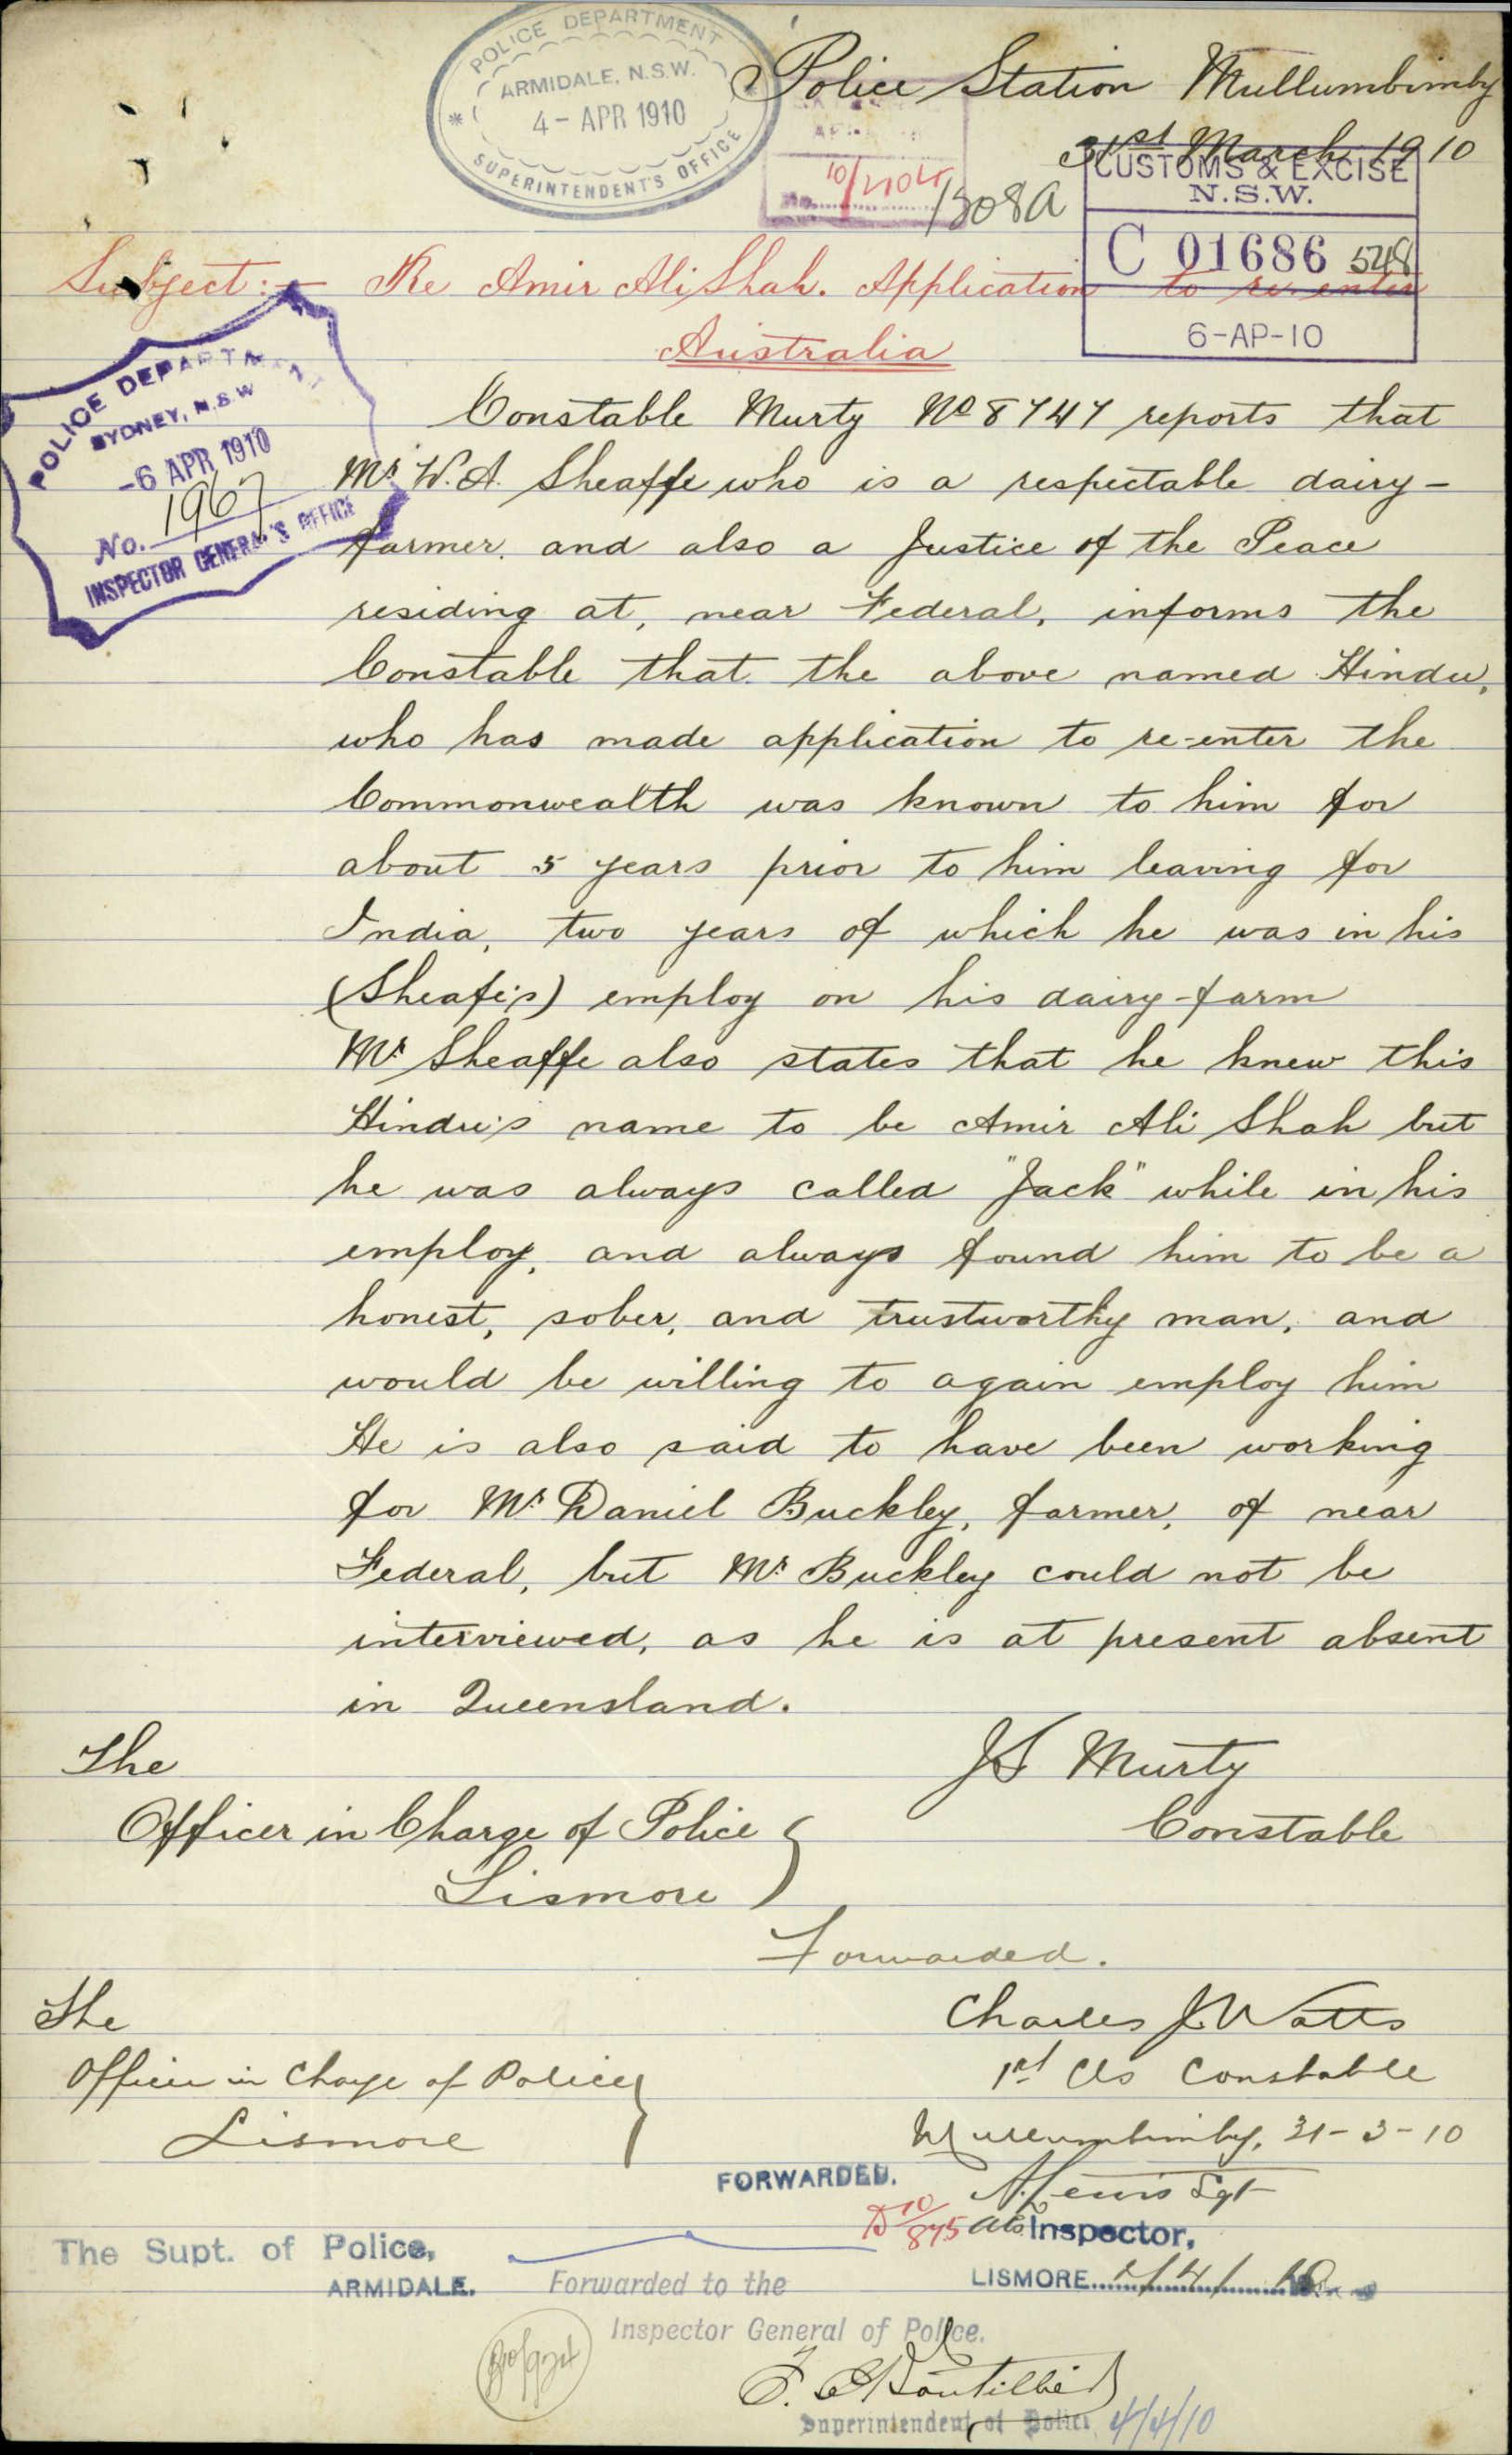 POLICE DEPARTMENT
ARMIDALE, N.S.W.
4 - APR 1910
SUPERINTENDENT'S OFFICE
Police Station Mullumbimby
31st March 1910
No.
1308A
CUSTOMS & EXCISE
N.S.W.
C 01686 548
6-AP-10
Subject:- Re Amir Ali Shah. Application to re-enter
Australia
POLICE DEPARTMENT
SYDNEY, N.S.W
-6 APR 1910
No. 1967
INSPECTOR GENERAL'S OFFICE
Constable Murty No 8747 reports that
Mr W.A. Sheaffe who is a respectable dairy-
farmer, and also a Justice of the Peace
residing at, near Federal, informs the
Constable that the above named Hindu,
who has made application to re-enter the
Commonwealth was known to him for
about 5 years prior to him leaving for
India, two years of which he was in his
(Sheafe's) employ on his dairy-farm
Mr Sheaffe also states that he knew this
Hindu's name to be Amir Ali Shah but
he was always called "Jack" while in his
employ, and always found him to be a
honest, sober, and trustworthy man, and
would be willing to again employ him
He is also said to have been working
for Mr Daniel Buckley, farmer, of near
Federal, but Mr Buckley could not be
interviewed, as he is at present absent
in Queensland.
JS Murty
Constable
The
Officer in Charge of Police
Lismore
Forwarded.
Charles J. Watts
1st Cls Constable
Mullumbimby, 31-3-10
The
Officer in Charge of Police
Lismore
FORWARDED.
A. Lewis Sgt
10/875
Inspector,
LISMORE 2/4/10
The Supt. of Police,
ARMIDALE.
Forwarded to the
Inspector General of Police.
Superintendent of Police 4/4/10